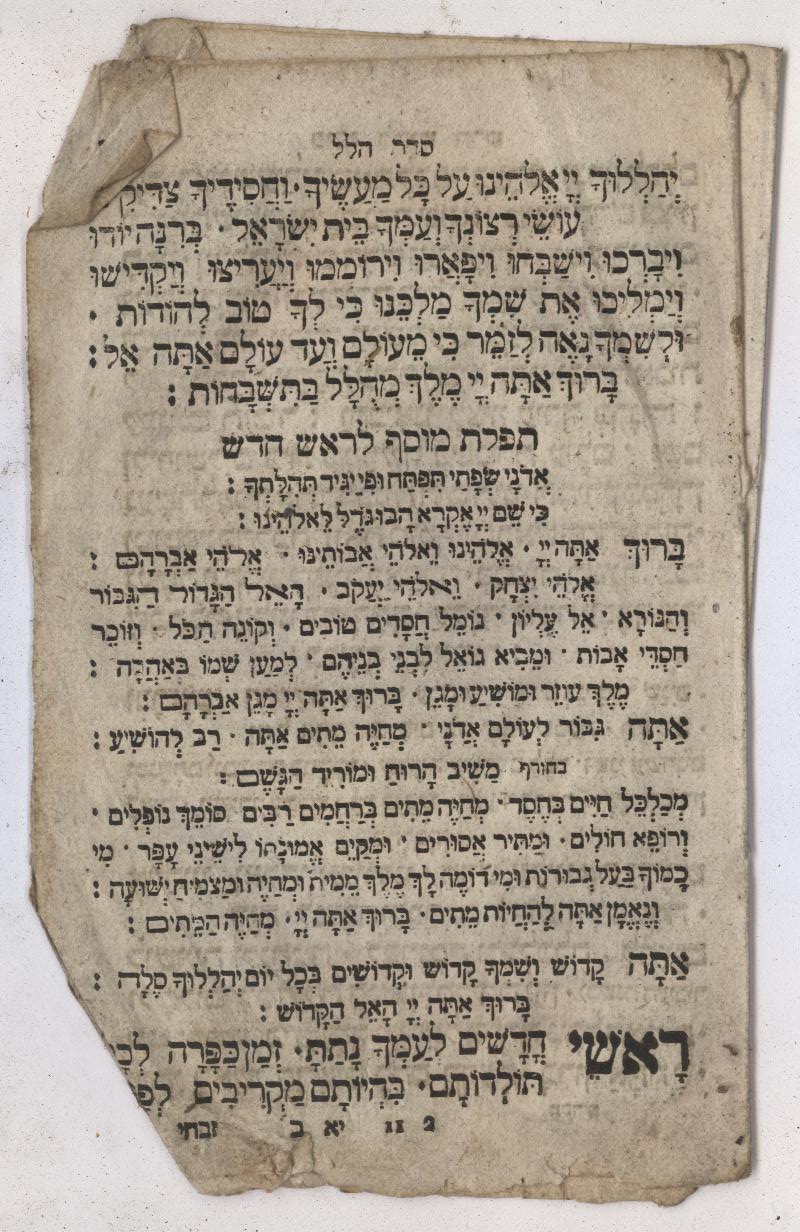 סדר הלל
יְהַלְלוּךָ יְיָ אֱלֹהֵינוּ עַל כָּל מַעֲשֶׂיךָ · וַחֲסִידֶיךָ צַדִּיקִ
עוֹשֵׂי רְצוֹנֶךָ וְעַמְּךָ בֵּית יִשְׂרָאֵל · בְּרִנָּה יוֹדוּ
וִיבָרְכוּ וִישַׁבְּחוּ וִיפָאֲרוּ וִירוֹמְמוּ וְיַעֲרִיצוּ וְיַקְדִּישׁוּ
וְיַמְלִיכוּ אֶת שִׁמְךָ מַלְכֵּנוּ כִּי לְךָ טוֹב לְהוֹדוֹת ·
וּלְשִׁמְךָ נָאֶה לְזַמֵּר כִּי מֵעוֹלָם וְעַד עוֹלָם אַתָּה אֵל :
בָּרוּךְ אַתָּה יְיָ מֶלֶךְ מְהֻלָּל בַּתִּשְׁבָּחוֹת :
תפלת מוסף לראש חדש
אֲדֹנָי שְׂפָתַי תִּפְתָּח וּפִי יַגִּיד תְּהִלָּתֶךָ :
כִּי שֵׁם יְיָ אֶקְרָא הָבוּ גֹדֶל לֵאלֹהֵינוּ :
בָּרוּךְ אַתָּה יְיָ · אֱלֹהֵינוּ וֵאלֹהֵי אֲבוֹתֵינוּ · אֱלֹהֵי אַבְרָהָם :
אֱלֹהֵי יִצְחָק · וֵאלֹהֵי יַעֲקֹב · הָאֵל הַגָּדוֹל הַגִּבּוֹר
וְהַנּוֹרָא · אֵל עֶלְיוֹן · גּוֹמֵל חֲסָדִים טוֹבִים · וְקוֹנֵה הַכֹּל · וְזוֹכֵר
חַסְדֵי אָבוֹת · וּמֵבִיא גוֹאֵל לִבְנֵי בְנֵיהֶם · לְמַעַן שְׁמוֹ בְּאַהֲבָה :
מֶלֶךְ עוֹזֵר וּמוֹשִׁיעַ וּמָגֵן · בָּרוּךְ אַתָּה יְיָ מָגֵן אַבְרָהָם :
אַתָּה גִּבּוֹר לְעוֹלָם אֲדֹנָי · מְחַיֵּה מֵתִים אַתָּה · רַב לְהוֹשִׁיעַ :
בחורף מַשִּׁיב הָרוּחַ וּמוֹרִיד הַגֶּשֶׁם :
מְכַלְכֵּל חַיִּים בְּחֶסֶד · מְחַיֵּה מֵתִים בְּרַחֲמִים רַבִּים סוֹמֵךְ נוֹפְלִים ·
וְרוֹפֵא חוֹלִים · וּמַתִּיר אֲסוּרִים · וּמְקַיֵּם אֱמוּנָתוֹ לִישֵׁינֵי עָפָר · מִי
כָמוֹךָ בַּעַל גְּבוּרוֹת וּמִי דוֹמֶה לָךְ מֶלֶךְ מֵמִית וּמְחַיֶּה וּמַצְמִיחַ יְשׁוּעָה :
וְנֶאֱמָן אַתָּה לְהַחֲיוֹת מֵתִים · בָּרוּךְ אַתָּה יְיָ · מְחַיֵּה הַמֵּתִים :
אַתָּה קָדוֹשׁ וְשִׁמְךָ קָדוֹשׁ וּקְדוֹשִׁים בְּכָל יוֹם יְהַלְלוּךָ סֶּלָה :
בָּרוּךְ אַתָּה יְיָ הָאֵל הַקָּדוֹשׁ :
רָאשֵׁי חֳדָשִׁים לְעַמְּךָ נָתַתָּ · זְמַן כַּפָּרָה לְכָ
תּוֹלְדוֹתָם · בִּהְיוֹתָם מַקְרִיבִים לְפָ
2 11 יא ב זבחי